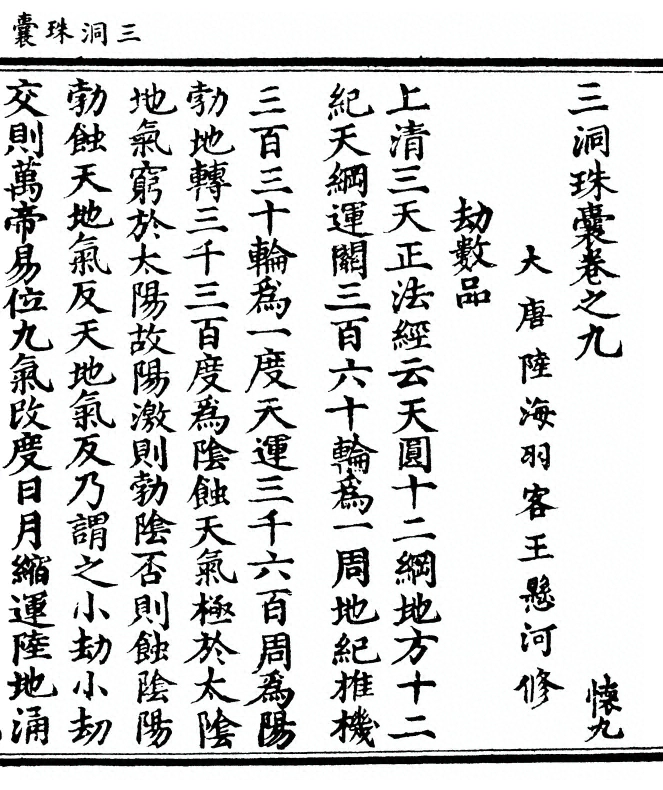 三洞珠囊
三洞珠囊卷之九
懷九
大唐陸海羽客王懸河修
劫數品
上清三天正法經云天圓十二綱地方十二
紀天綱運關三百六十輪爲一周地紀推機
三百三十輪爲一度天運三千六百周爲陽
勃地轉三千三百度爲陰蝕天氣極於太陰
地氣窮於太陽故陽激則勃陰否則蝕陰陽
勃蝕天地氣反天地氣反乃謂之小劫小劫
交則萬帝易位九氣改度日月縮運陸地涌